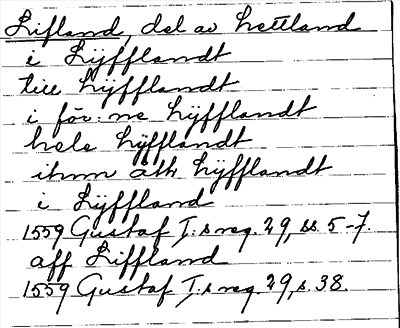 Lifland, del av Lettland
i Lÿfflandt
till Lÿfflandt
i för:ne Lÿfflandt
hele Lÿfflandt
ihnn åth Lÿfflandt
i Lÿffland
1559 Gustaf I:s reg. 29, ss. 5-7.
aff Liffland
1559 Gustaf I:s reg. 29, s. 38.